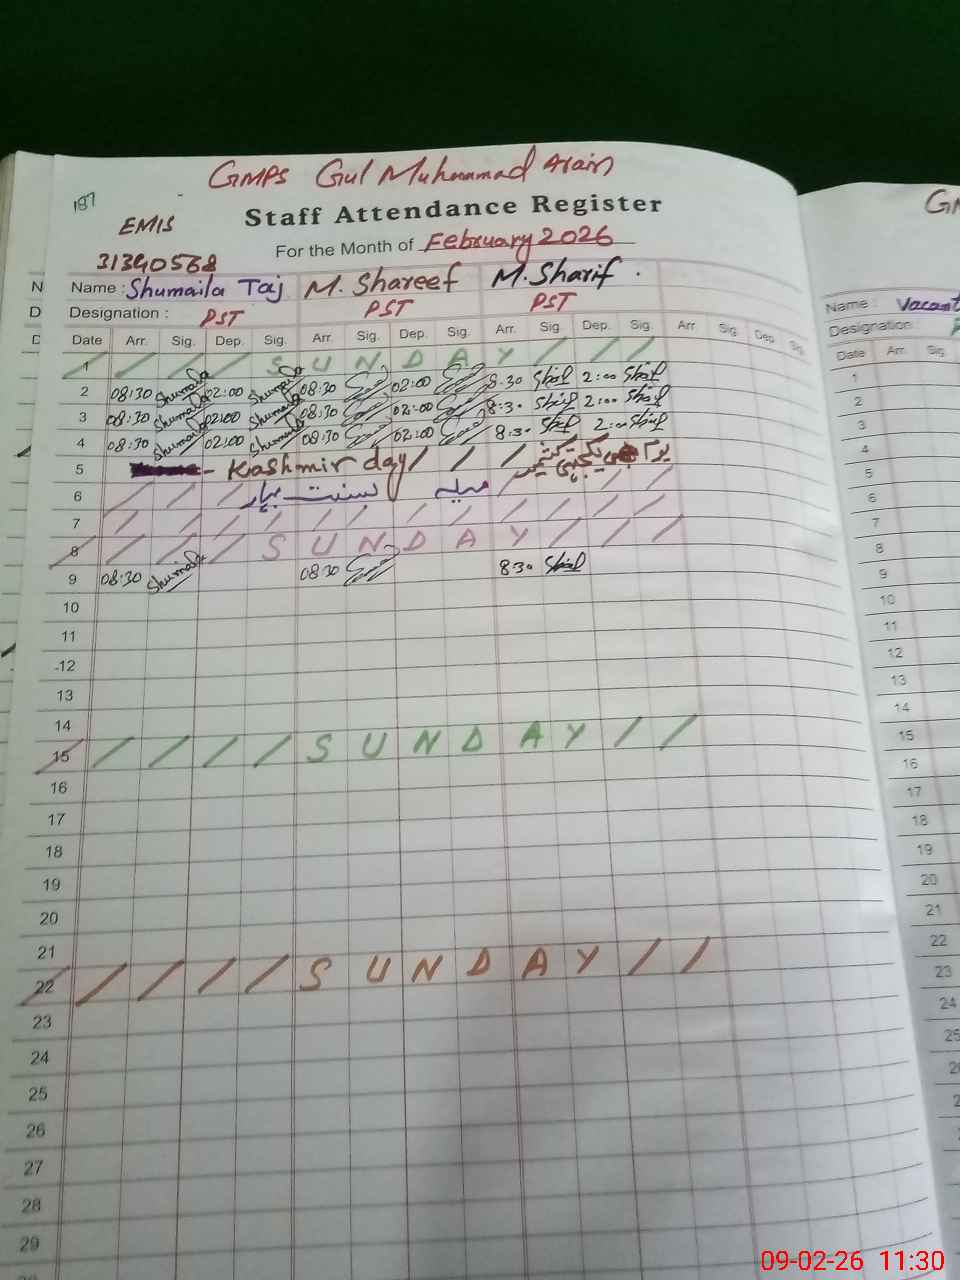 GMPS Gul Muhammad Arain
187
Staff Attendance Register
EMIS
31340568
For the Month of February 2026
Name : Shumaila Taj M. Shareef M. Sharif
Designation : PST PST PST
Date Arr. Sig. Dep. Sig. Arr. Sig. Dep. Sig. Arr. Sig. Dep. Sig. Arr. Sig. Dep. Sig.
1 SUNDAY
2 08:30 Shumaila 02:00 Shumaila 08:30 02:00 8.30 Sharif 2:00 Sharif
3 08:30 Shumaila 02:00 Shumaila 08:30 02:00 8:30 Sharif 2:00 Sharif
4 08:30 Shumaila 02:00 Shumaila 08:30 02:00 8:30 Sharif 2:00 Sharif
5 - Kashmir day یوم یکجہتی کشمیر
6 میلہ بسنت بہار
7
8 SUNDAY
9 08:30 Shumaila 08:30 830 Sharif
10
11
12
13
14
15 SUNDAY
16
17
18
19
20
21
22 SUNDAY
23
24
25
26
27
28
29
Name : Vacant
Designation :
Date Arr. Sig.
1
2
3
4
5
6
7
8
9
10
11
12
13
14
15
16
17
18
19
20
21
22
23
24
25
09-02-26 11:30